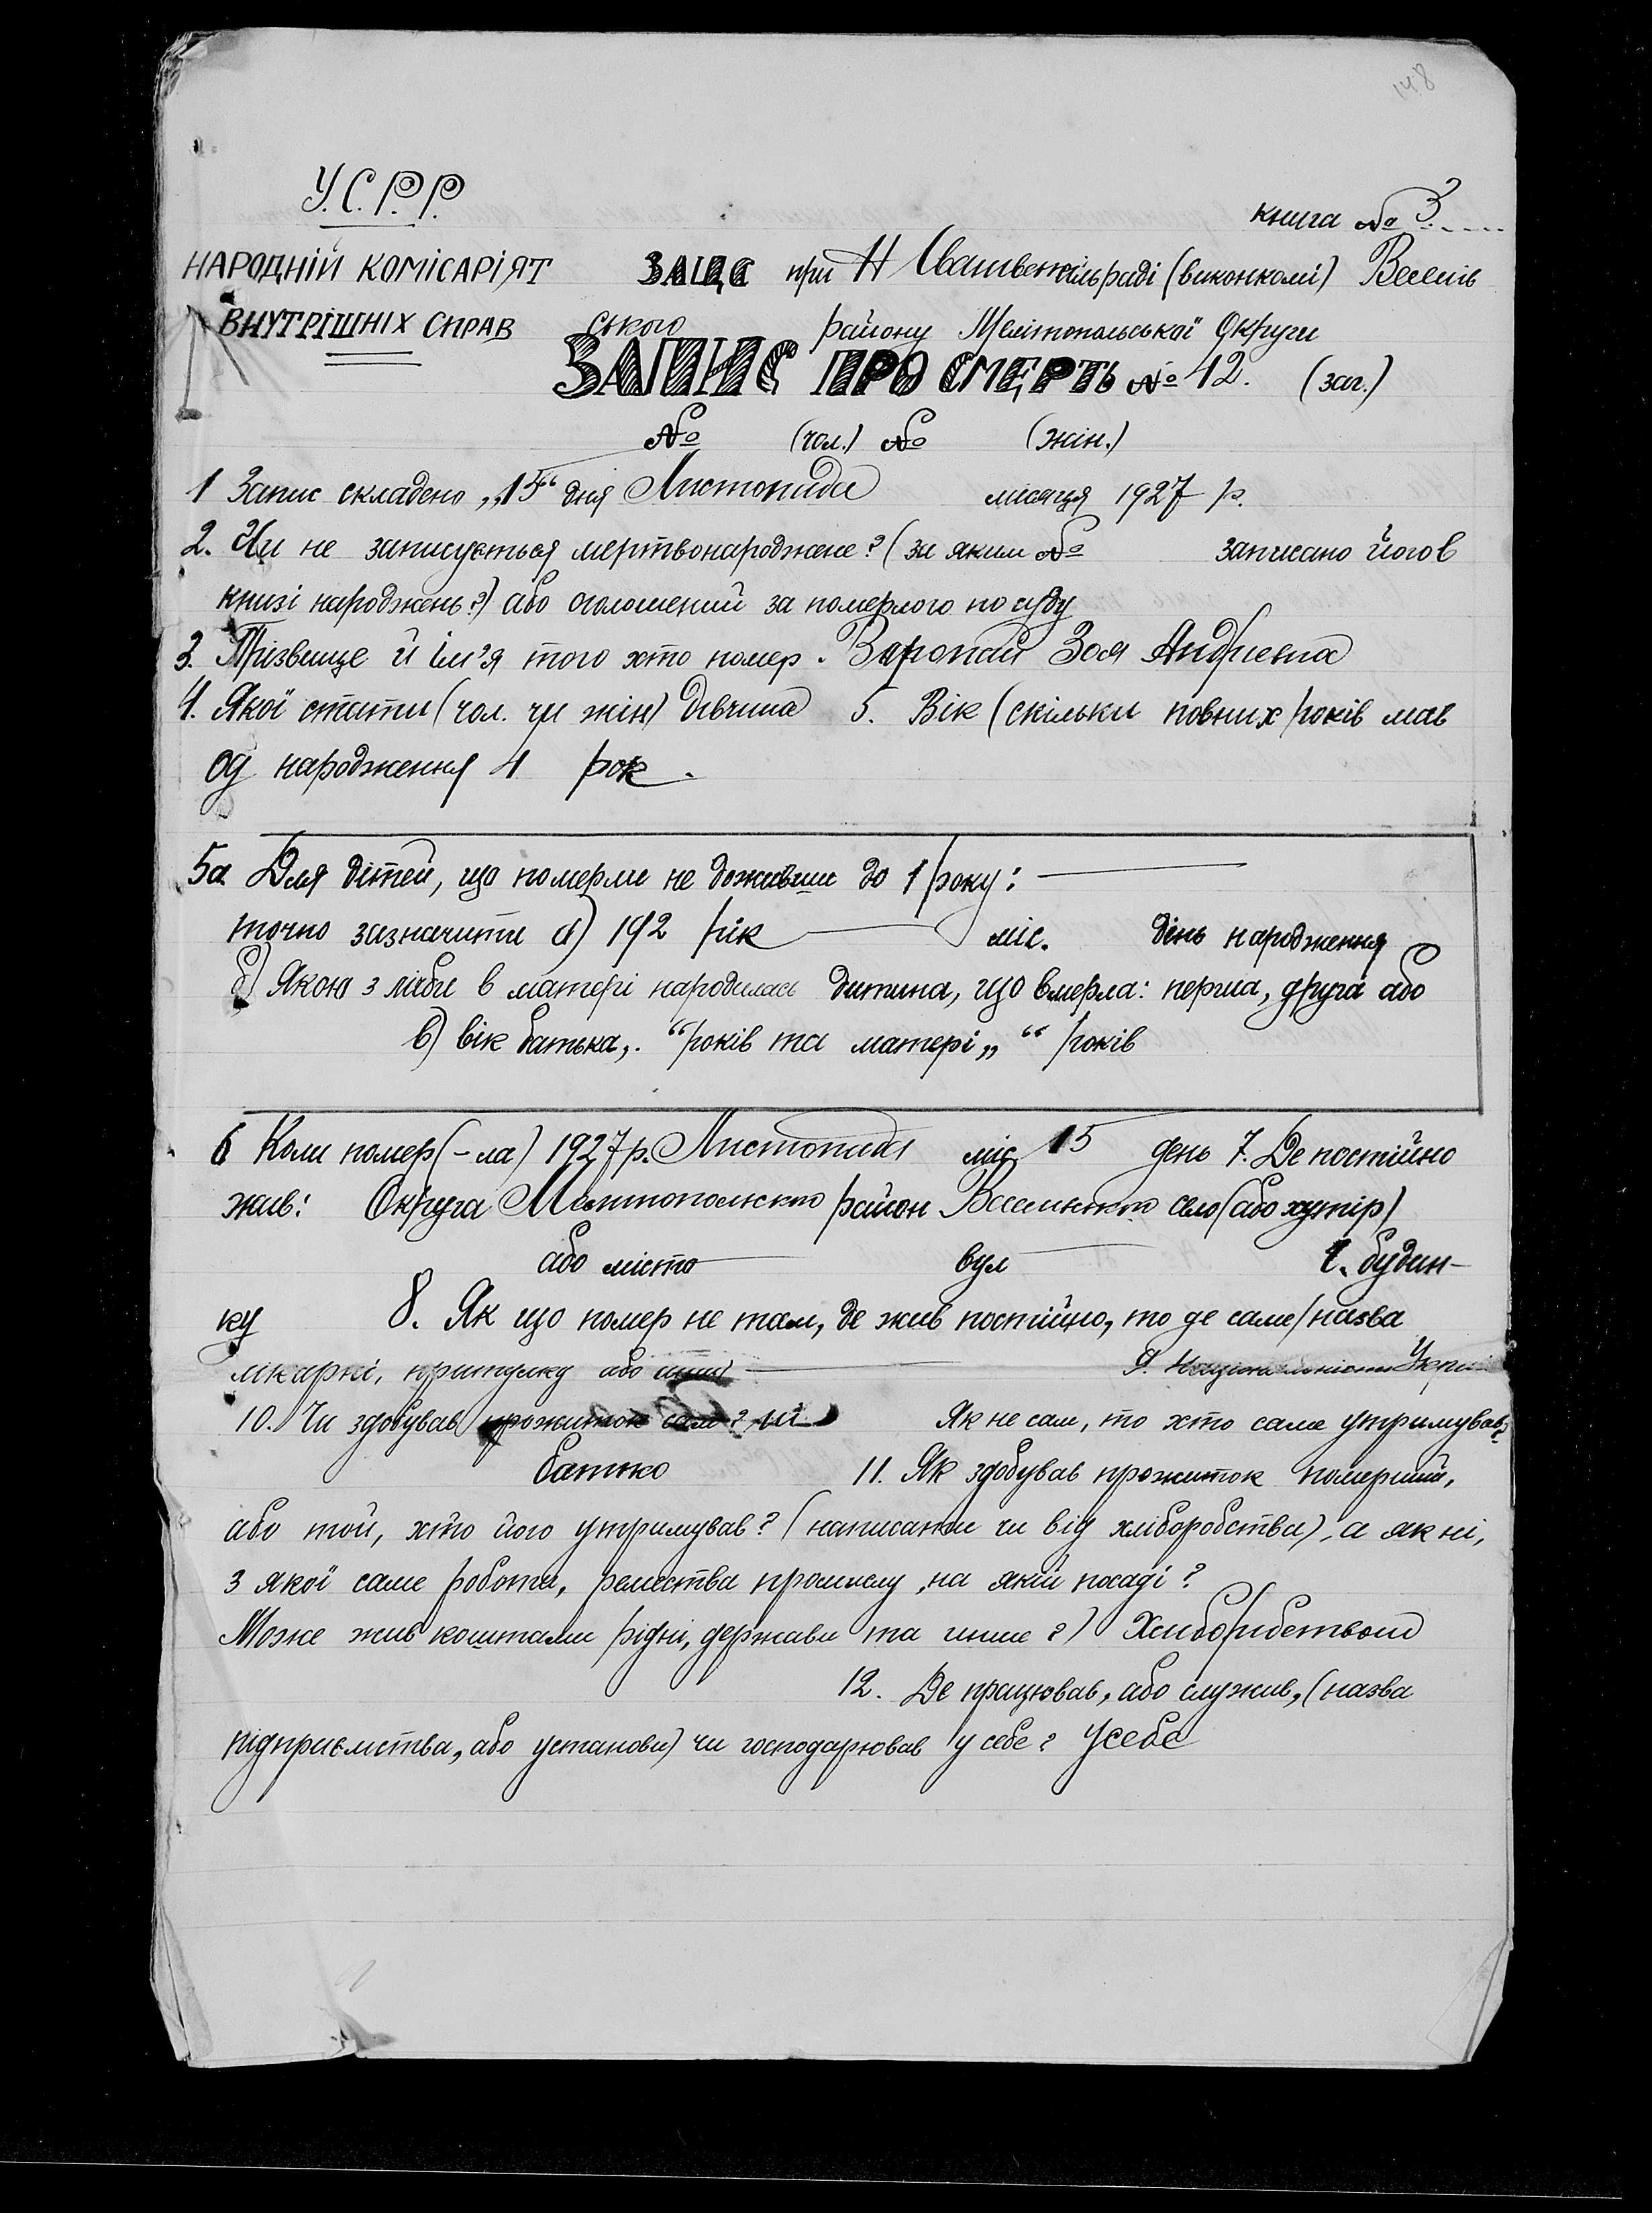 148
У.С.Р.Р.
книга № 3
НАРОДНІЙ КОМІСАРІЯТ ЗАЦС при Н сільраді (виконкомі) Веселів
ВНУТРІШНІХ СПРАВ ського району Мелітопольської Округи
ЗАПИС ПРО СМЕРТЬ № 42. (заг.)
№ (чол.) № (жін.)
1 Запис складено „15“ дня Листопада місяця 1927 р.
2. Чи не записується мертвонароджене? (за яким № записано його в
книзі народжень?) або оголошений за померлого по суду
3. Прізвище й ім'я того хто помер. Варопай Зоя Андріевна
4. Якої стати (чол. чи жін) дівчина 5. Вік (скільки повних років мав
од народження 4 рок.
5а Для дітей, що померли не доживши до 1 року:
точно зазначити а) 192 рік міс. день народження
б) Якою з ліби в матері народилась дитина, що вмерла: перша, друга або
в) вік батька, „ “ років та матері „ “ років
6 Коли помер (-ла) 1927 р. Листопада міс 15 день 7. Де постійно
жив: Округа район село (або хутір)
або місто вул ч. будин-
ку 8. Як що помер не там, де жив постійно, то де саме (назва
лікарні, притулку або інш 9. Національність Украї
10. Чи здобував прожиток сам? ні Як не сам, то хто саме утримував?
батько 11. Як здобував прожиток померший,
або той, хто його утримував? (написати чи від хліборобства), а як ні,
з якої саме роботи, ремества промислу, на якій посаді?
Може жив коштами рідні, держави та инше?) Хлиборобством
12. Де працював, або служив, (назва
підприємства, або установи) чи господарював у себе? Усебе